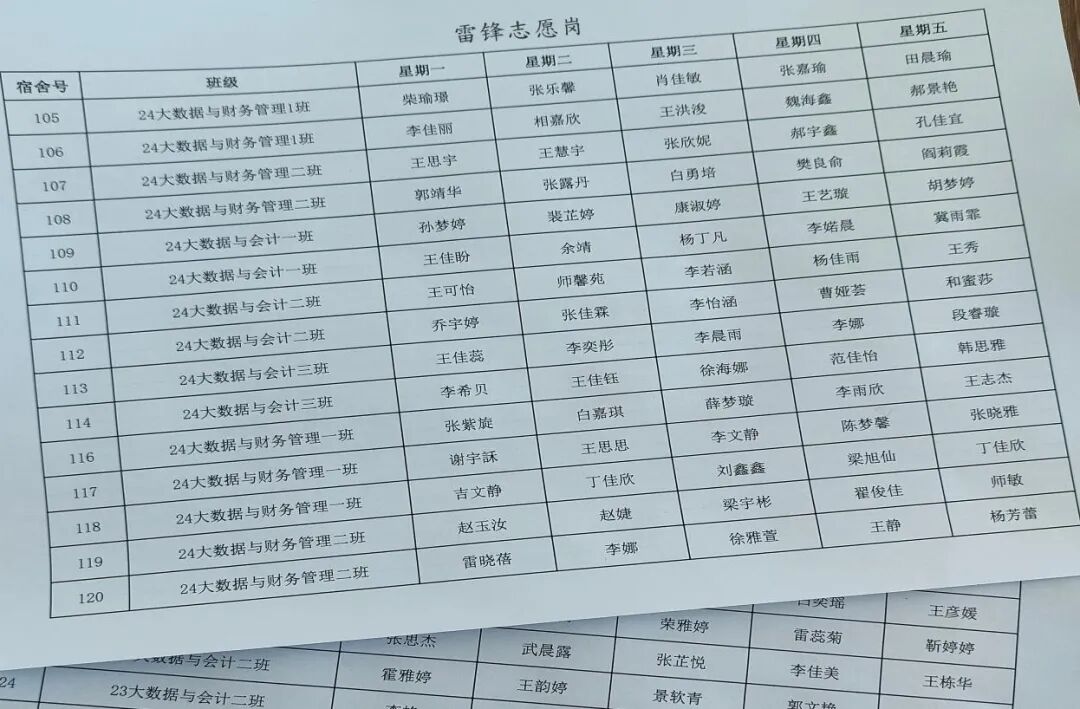 雷锋志愿岗
宿舍号 班级 星期一 星期二 星期三 星期四 星期五
105 24大数据与财务管理1班 柴瑜璟 张乐馨 肖佳敏 张嘉瑜 田晨瑜
106 24大数据与财务管理1班 李佳丽 相嘉欣 王洪浚 魏海鑫 郝景艳
107 24大数据与财务管理二班 王思宇 王慧宇 张欣妮 郝宇鑫 孔佳宜
108 24大数据与财务管理二班 郭靖华 张露丹 白勇培 樊良俞 阎莉霞
109 24大数据与会计一班 孙梦婷 裴芷婷 康淑婷 王艺璇 胡梦婷
110 24大数据与会计一班 王佳盼 余靖 杨丁凡 李婼晨 冀雨霏
111 24大数据与会计二班 王可怡 师馨苑 李若涵 杨佳雨 王秀
112 24大数据与会计二班 乔宇婷 张佳霖 李怡涵 曹娅荟 和蜜莎
113 24大数据与会计三班 王佳蕊 李奕彤 李晨雨 李娜 段睿璇
114 24大数据与会计三班 李希贝 王佳钰 徐海娜 范佳怡 韩思雅
116 24大数据与财务管理一班 张紫旋 白嘉琪 薛梦璇 李雨欣 王志杰
117 24大数据与财务管理一班 谢宇訸 王思思 李文静 陈梦馨 张晓雅
118 24大数据与财务管理一班 吉文静 丁佳欣 刘鑫鑫 梁旭仙 丁佳欣
119 24大数据与财务管理二班 赵玉汝 赵婕 梁宇彬 翟俊佳 师敏
120 24大数据与财务管理二班 雷晓蓓 李娜 徐雅萱 王静 杨芳蕾
王彦媛
荣雅婷 雷蕊菊 靳婷婷
张思杰 武晨露 张芷悦 李佳美 王栋华
大数据与会计二班 霍雅婷 王韵婷 景软青 郭文艳
24 23大数据与会计二班